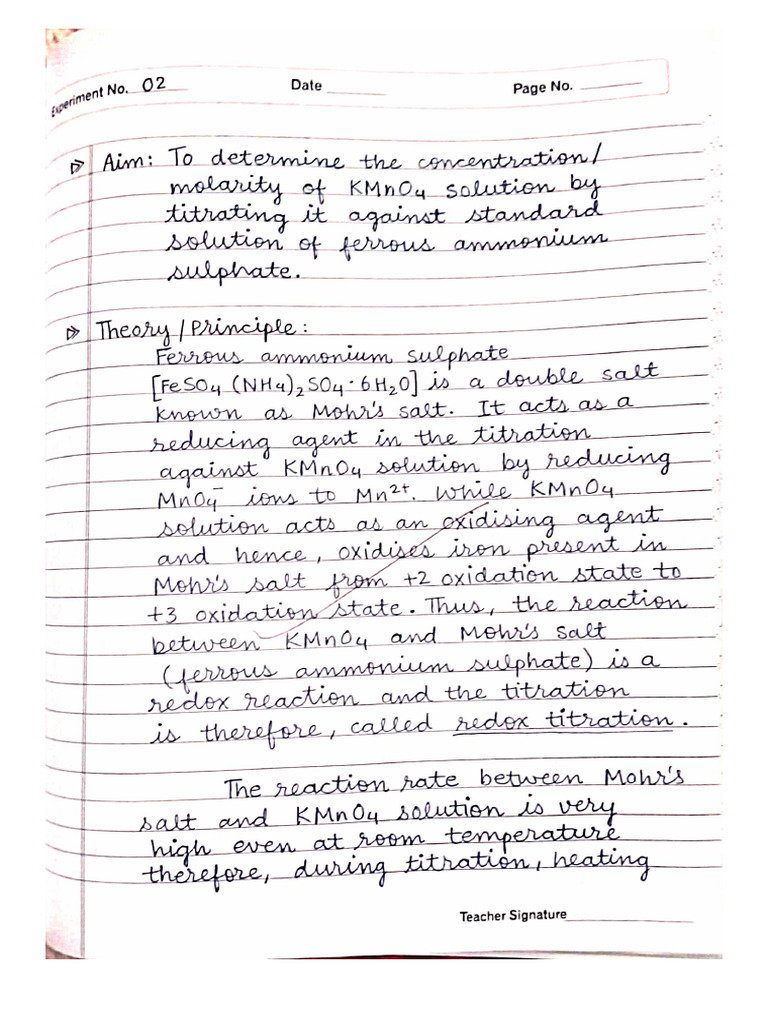 Experiment No. 02 Date Page No.
Aim: To determine the concentration/
molarity of KMnO4 solution by
titrating it against standard
solution of ferrous ammonium
sulphate.
Theory/Principle:
Ferrous ammonium sulphate
[FeSO4 (NH4)2SO4·6H2O] is a double salt
known as Mohr's salt. It acts as a
reducing agent in the titration
against KMnO4 solution by reducing
MnO4⁻ ions to Mn²⁺. While KMnO4
solution acts as an oxidising agent
and hence, oxidises iron present in
Mohr's salt from +2 oxidation state to
+3 oxidation state. Thus, the reaction
between KMnO4 and Mohr's salt
(ferrous ammonium sulphate) is a
redox reaction and the titration
is therefore, called redox titration.
The reaction rate between Mohr's
salt and KMnO4 solution is very
high even at room temperature
therefore, during titration, heating
Teacher Signature